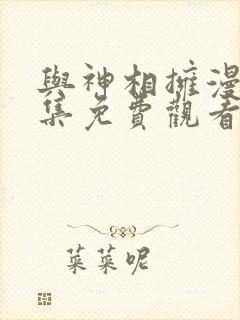 與神相擁漫
集免費觀看
菜菜呢